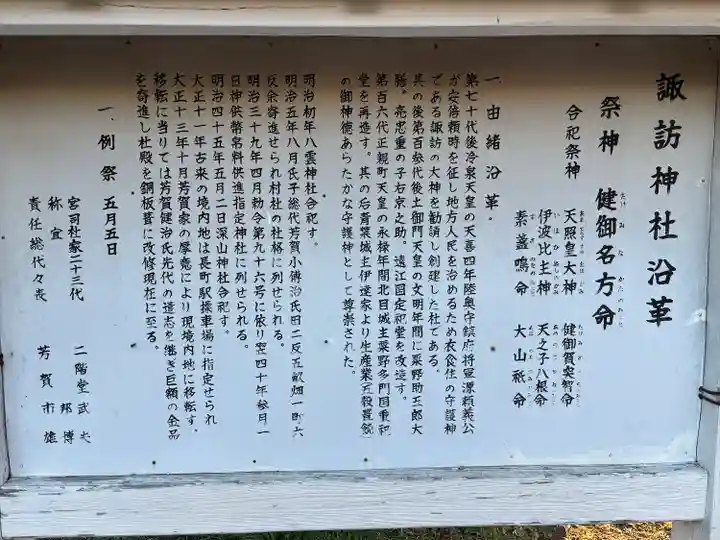 諏訪神社沿革
祭神 健御名方命
たけ み な かたのみこと
合祀祭神
天照皇大神 健御賀突智命
伊波比主神 天之子八根命
素盞嗚命 大山祇命
一 由緒沿革
第七十代後冷泉天皇の天喜四年陸奥守鎮府将軍源頼義公
が安倍頼時を征し地方人民を治めるため衣食住の守護神
である諏訪の大神を勧請し創建した社である。
其の後第百参代後土御門天皇の文明年間に粟野助五郎大
膳。亮忠重の子右京之助。遠江国定祠堂を改造す。
第百六代正親町天皇の永禄年間北目城主粟野多門国重祀
堂を再造す。其の后青葉城主伊達家より生産業五穀置餟
の御神徳あらたかな守護神として尊崇された。
明治初年八雲神社合祀す。
明治五年八月氏子総代芳賀小傳治氏田二反五畝畑一町六
反余寄進せられ村社の社格に列せられる。
明治三十九年四月勅令第九十六号に依り翌四十年参月一
日神供幣帛料供進指定神社に列せられる。
明治四十五年五月二日深山神社合祀す。
大正十一年古来の境内地は長町駅操車場に指定せられ
大正十三年十月芳賀家の厚意により現境内地に移転す。
移転に当りては芳賀健治氏先代の遺志を継ぎ巨額の金品
を寄進し社殿を銅板葺に改修現在に至る。
一 例祭 五月五日
宮司社家二十三代 二階堂武夫
祢宜 邦博
責任総代々表 芳賀市雄